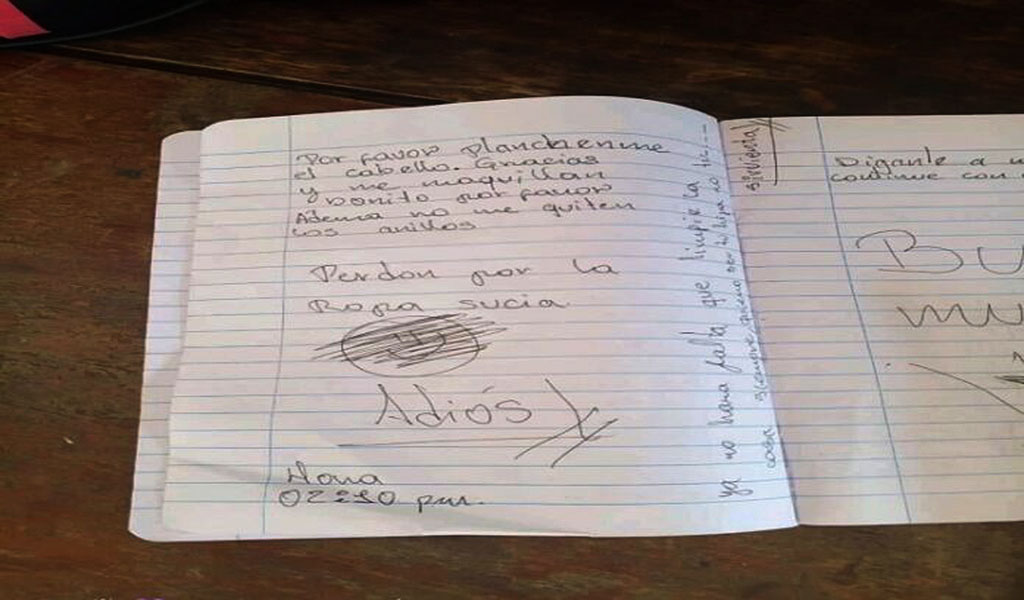 Por favor planchenme
el cabello. Gracias
y me maquillan
bonito por favor
Adema no me quiten
los anillos
Perdon por la
Ropa sucia.
Adiós
Hora
02:10 pm.
ya no hara falta que limpie la
casa siempre pienso ser tu hija no tu...
sirvienta
Diganle a
continue con
BU
MU